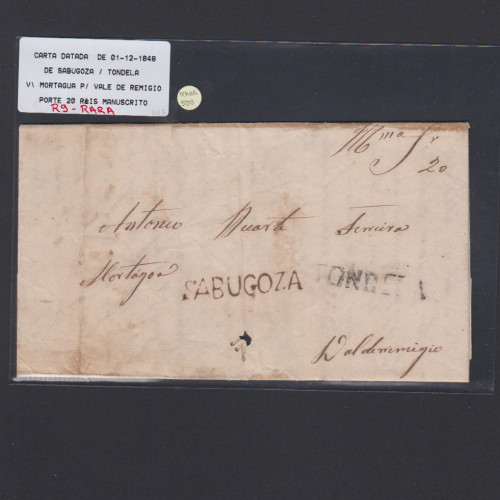 CARTA DATADA DE 01-12-1848
DE SABUGOZA / TONDELA
V\ MORTAGUA P/ VALE DE REMIGIO
PORTE 20 RÉIS MANUSCRITO
R9 - RARA
RARA
500
Illmo Sr
20
Antonio Duarte Ferreira
Mortagoa
SABUGOZA
TONDELA
Valderemigio